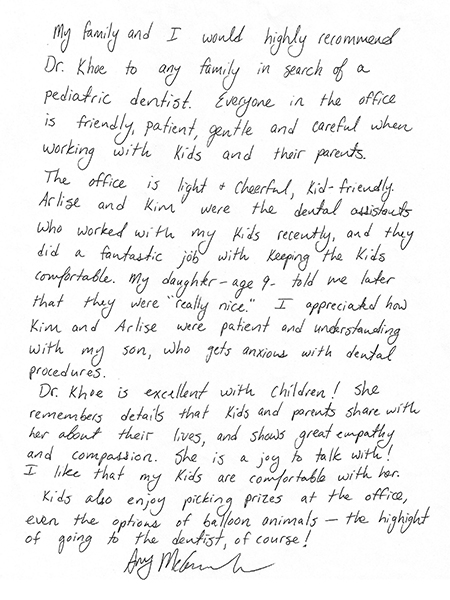 My family and I would highly recommend
Dr. Khoe to any family in search of a
pediatric dentist. Everyone in the office
is friendly, patient, gentle and careful when
working with kids and their parents.
The office is light + cheerful, kid-friendly.
Arlise and Kim were the dental assistants
who worked with my kids recently, and they
did a fantastic job with keeping the kids
comfortable. My daughter - age 9 - told me later
that they were "really nice." I appreciated how
Kim and Arlise were patient and understanding
with my son, who gets anxious with dental
procedures.
Dr. Khoe is excellent with children! She
remembers details that kids and parents share with
her about their lives, and shows great empathy
and compassion. She is a joy to talk with!
I like that my kids are comfortable with her.
Kids also enjoy picking prizes at the office,
even the options of balloon animals — the highight
of going to the dentist, of course!
Amy